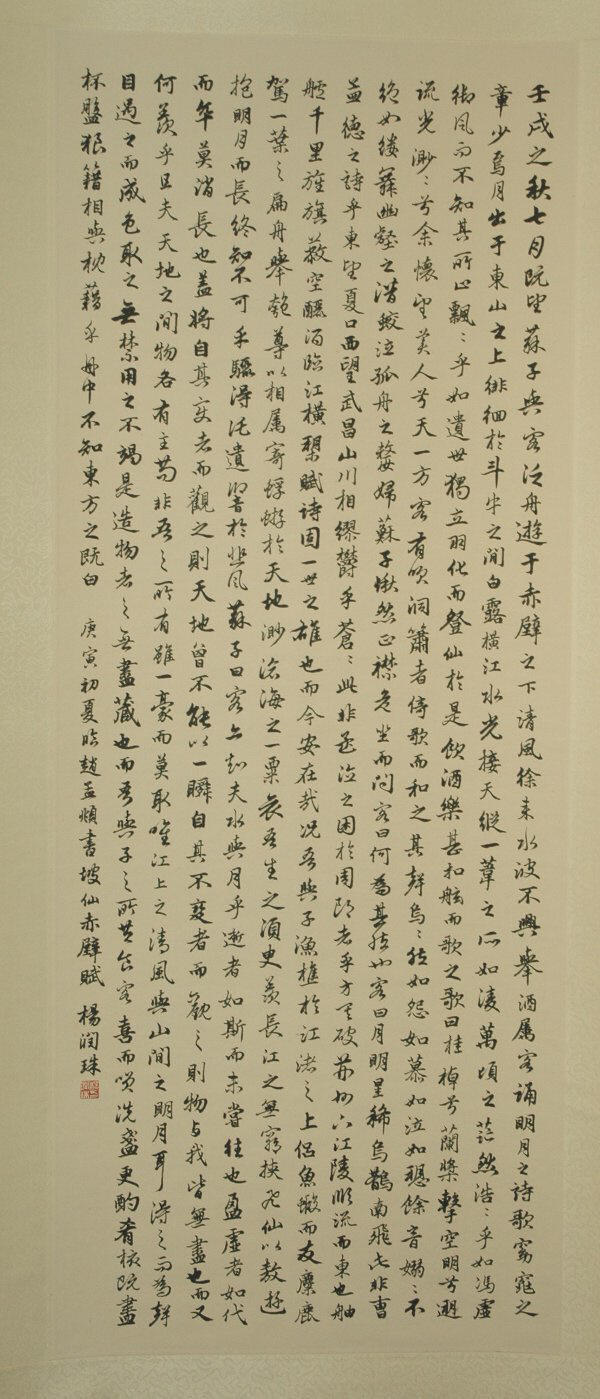 壬戌之秋七月既望蘇子與客泛舟遊于赤壁之下清風徐來水波不興舉酒屬客誦明月之詩歌窈窕之
章少焉月出于東山之上徘徊於斗牛之間白露橫江水光接天縱一葦之所如凌萬頃之茫然浩〻乎如馮虛
御風而不知其所止飄〻乎如遺世獨立羽化而登仙於是飲酒樂甚扣舷而歌之歌曰桂棹兮蘭槳擊空明兮遡
流光渺〻兮余懷望美人兮天一方客有吹洞簫者倚歌而和之其聲嗚〻然如怨如慕如泣如訴餘音嫋〻不
絕如縷舞幽壑之潛蛟泣孤舟之嫠婦蘇子愀然正襟危坐而問客曰何為其然也客曰月明星稀烏鵲南飛此非曹
孟德之詩乎東望夏口西望武昌山川相繆鬱乎蒼〻此非孟德之困於周郎者乎方其破荊州下江陵順流而東也舳
艫千里旌旗蔽空釃酒臨江橫槊賦詩固一世之雄也而今安在哉況吾與子漁樵於江渚之上侶魚蝦而友麋鹿
駕一葉之扁舟舉匏尊以相屬寄蜉蝣於天地渺滄海之一粟哀吾生之須臾羨長江之無窮挾飛仙以遨遊
抱明月而長終知不可乎驟得託遺響於悲風蘇子曰客亦知夫水與月乎逝者如斯而未嘗往也盈虛者如代
而卒莫消長也蓋將自其變者而觀之則天地曾不能以一瞬自其不變者而觀之則物與我皆無盡也而又
何羨乎且夫天地之間物各有主苟非吾之所有雖一豪而莫取唯江上之清風與山間之明月耳得之而為聲
目遇之而成色取之無禁用之不竭是造物者之無盡藏也而吾與子之所共食客喜而笑洗盞更酌肴核既盡
杯盤狼籍相與枕藉乎舟中不知東方之既白 庚寅初夏臨趙孟頫書坡仙赤壁賦 楊潤珠